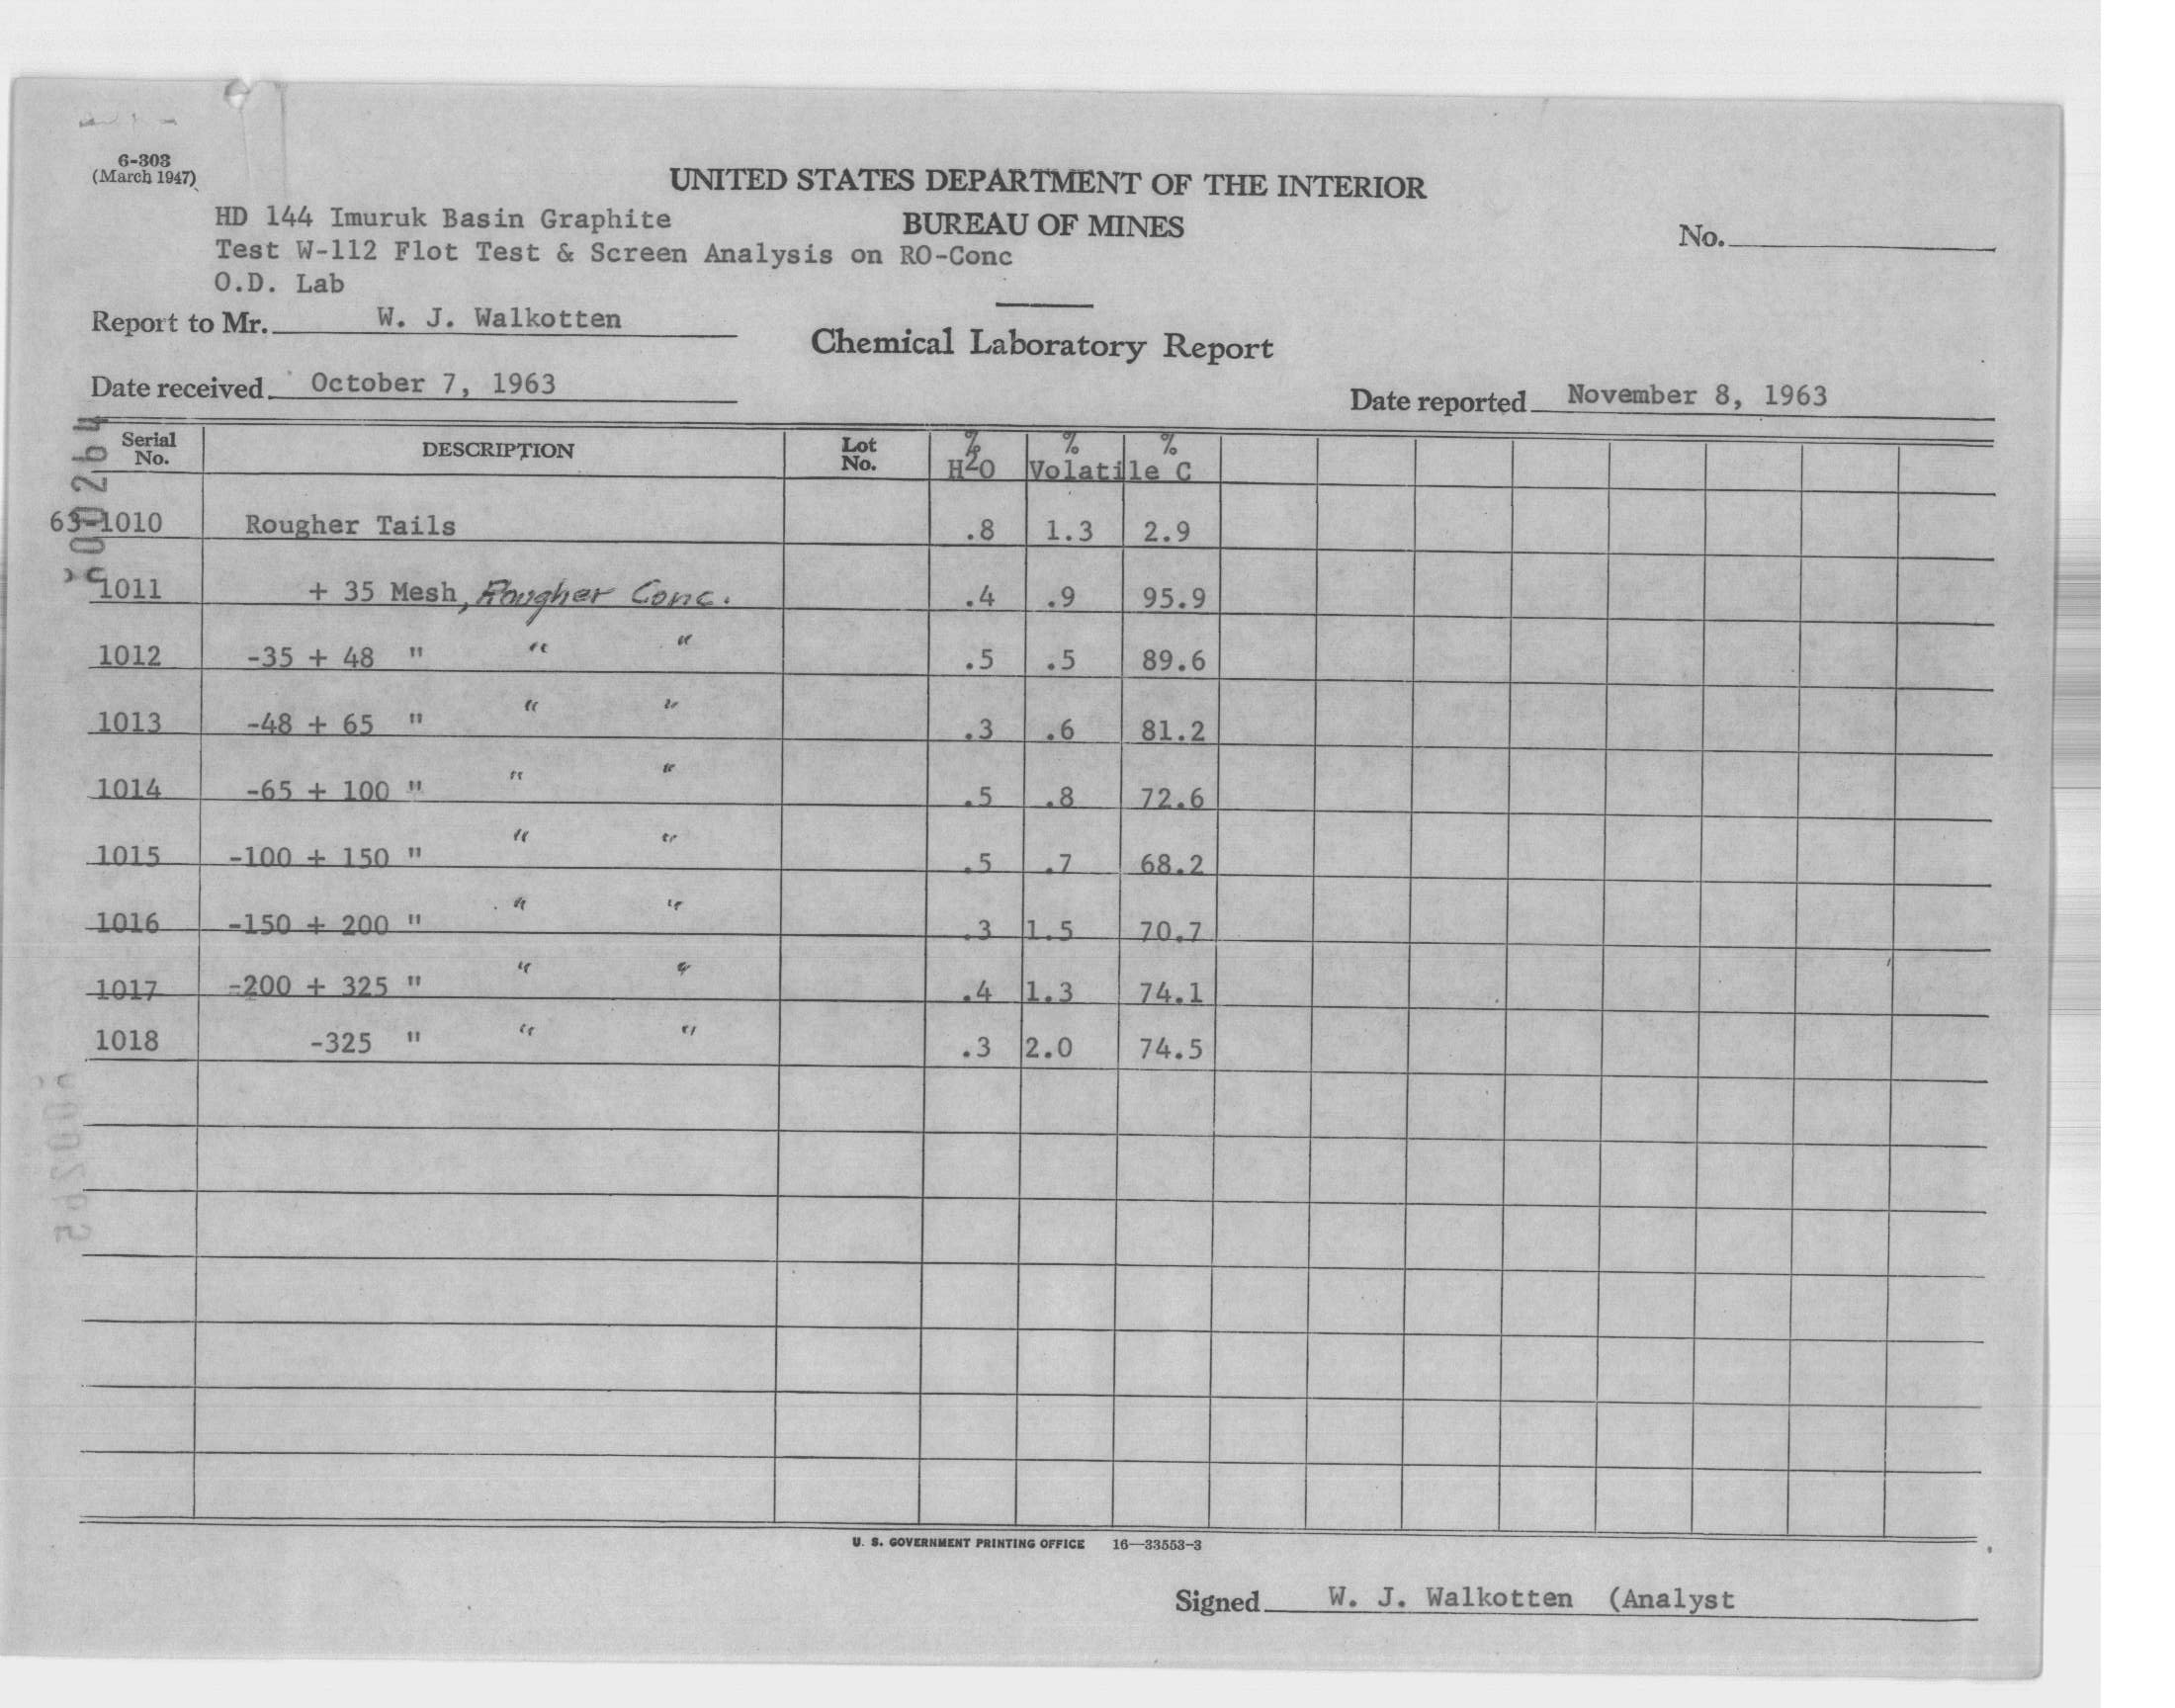 6-303
(March 1947)
UNITED STATES DEPARTMENT OF THE INTERIOR
HD 144 Imuruk Basin Graphite
BUREAU OF MINES
No.
Test W-112 Flot Test & Screen Analysis on RO-Conc
O.D. Lab
Report to Mr. W. J. Walkotten
Chemical Laboratory Report
Date received October 7, 1963
Date reported November 8, 1963
Serial No. DESCRIPTION Lot No. % H2O % Volatile % C
63-1010 Rougher Tails .8 1.3 2.9
1011 + 35 Mesh, Rougher Conc. .4 .9 95.9
1012 -35 + 48 " " " .5 .5 89.6
1013 -48 + 65 " " " .3 .6 81.2
1014 -65 + 100 " " " .5 .8 72.6
1015 -100 + 150 " " " .5 .7 68.2
1016 -150 + 200 " " " .3 1.5 70.7
1017 -200 + 325 " " " .4 1.3 74.1
1018 -325 " " " .3 2.0 74.5
U. S. GOVERNMENT PRINTING OFFICE 16—33553-3
Signed W. J. Walkotten (Analyst